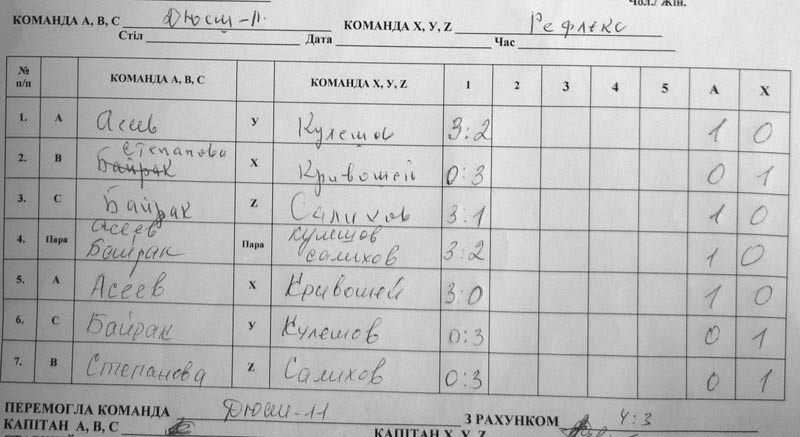 Чол./ Жін.
КОМАНДА А, В, С Дюсш-11. КОМАНДА Х, У, Z Рефлекс
Стіл Дата Час
№ п/п КОМАНДА А, В, С КОМАНДА Х, У, Z 1 2 3 4 5 А Х
1. А Асеев У Кулешов 3:2 1 0
Степанова
2. В Байрак Х Кривошей 0:3 0 1
3. С Байрак Z Салихов 3:1 1 0
Асеев Кулешов
4. Пара Байрак Пара Салихов 3:2 1 0
5. А Асеев Х Кривошей 3:0 1 0
6. С Байрак У Кулешов 0:3 0 1
7. В Степанова Z Салихов 0:3 0 1
ПЕРЕМОГЛА КОМАНДА Дюсш-11 З РАХУНКОМ 4:3
КАПІТАН А, В, С КАПІТАН Х, У, Z